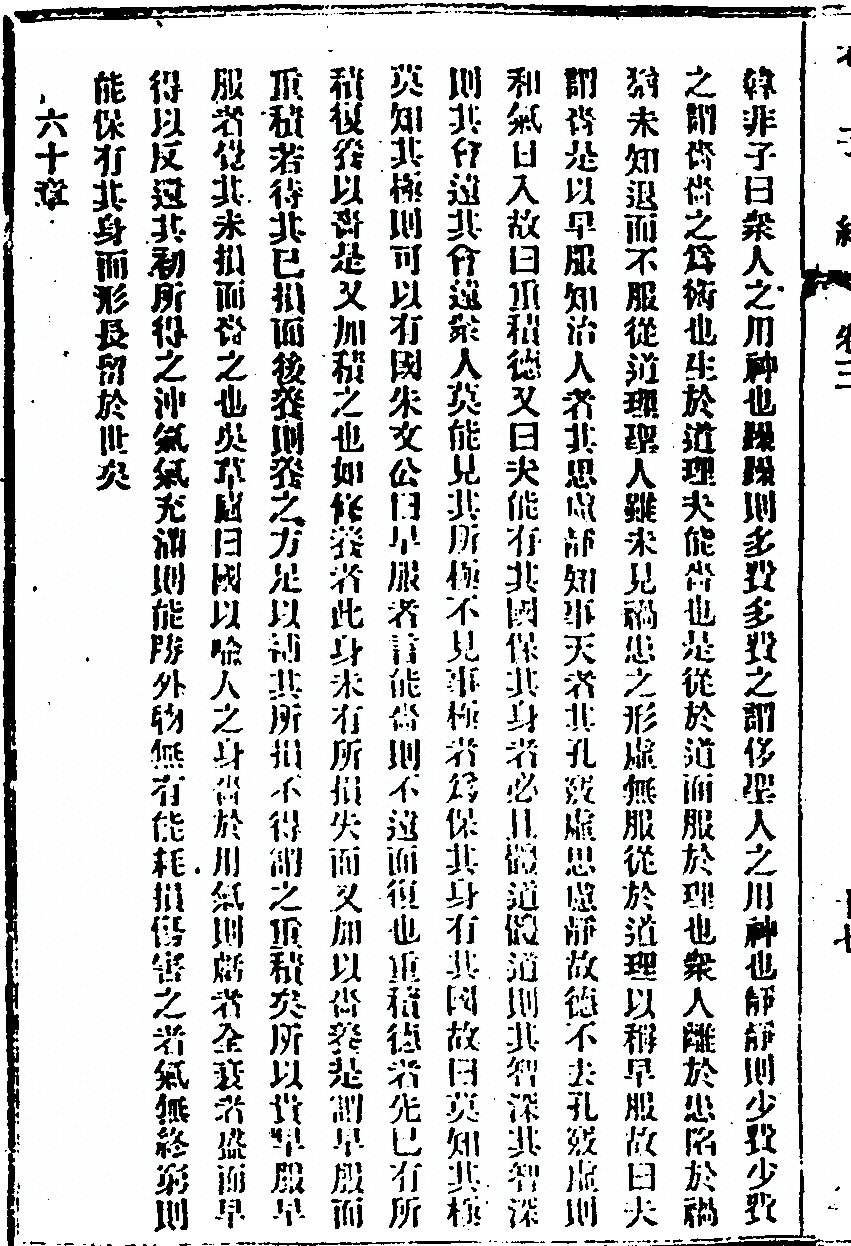 老子經 卷三
韓非子曰衆人之用神也躁躁則多費多費之謂侈聖人之用神也靜靜則少費少費
之謂嗇嗇之爲術也生於道理夫能嗇也是從於道而服於理也衆人離於患陷於禍
猶未知退而不服從道理聖人雖未見禍患之形虛無服從於道理以稱早服故曰夫
謂嗇是以早服知治人者其思慮靜知事天者其孔竅虛思慮靜故德不去孔竅虛則
和氣日入故曰重積德又曰夫能有其國保其身者必且體道體道則其智深其智深
則其會遠其會遠衆人莫能見其所極不見事極者爲保其身有其國故曰莫知其極
莫知其極則可以有國朱文公曰早服者言能嗇則不遠而復也重積德者先已有所
積復養以嗇是又加積之也如修養者此身未有所損失而又加以嗇養是謂早服而
重積若待其已損而後養則養之方足以補其所損不得謂之重積矣所以貴早服早
服者及其未損而嗇之也吳草廬曰國以喻人之身嗇於用氣則虧者全衰者盛而早
得以反還其初所得之沖氣氣充滿則能勝外物無有能耗損傷害之者氣無終窮則
能保有其身而形長留於世矣
六十章